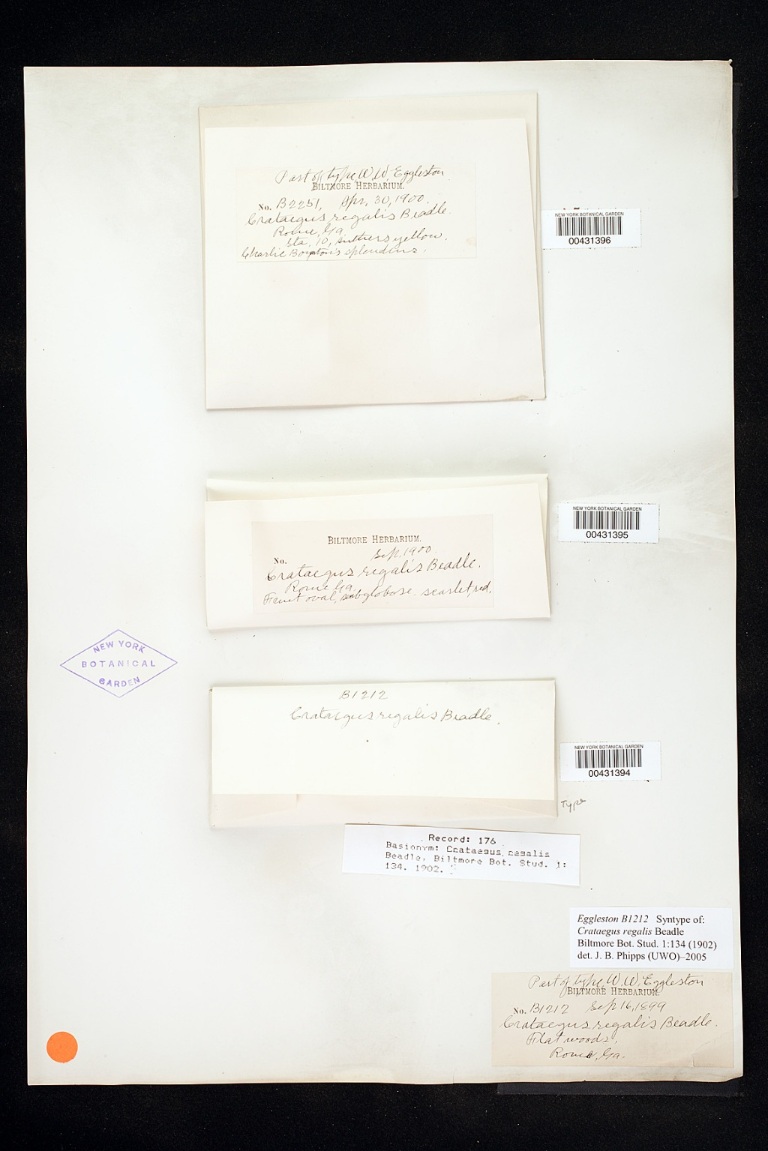 Part of type W.W. Eggleston
BILTMORE HERBARIUM.
No. B2251, Apr. 30, 1900.
Crataegus regalis Beadle.
Rome, Ga.
Sta. 10, anthers yellow.
Charlie Boynton's splendens.
NEW YORK BOTANICAL GARDEN
00431396
BILTMORE HERBARIUM.
No. Sep. 1900
Crataegus regalis Beadle.
Rome Ga
Fruit oval, subglobose scarlet, red.
NEW YORK BOTANICAL GARDEN
00431395
NEW YORK
BOTANICAL
GARDEN
B1212
Crataegus regalis Beadle.
NEW YORK BOTANICAL GARDEN
00431394
Type
Record: 176
Basionym: Crataegus regalis
Beadle, Biltmore Bot. Stud. 1:
134. 1902.
Eggleston B1212 Syntype of:
Crataegus regalis Beadle
Biltmore Bot. Stud. 1:134 (1902)
det. J. B. Phipps (UWO)–2005
Part of type W.W. Eggleston
BILTMORE HERBARIUM.
No. B1212 Sep 16, 1899
Crataegus regalis Beadle.
Flat woods.
Rome, Ga.